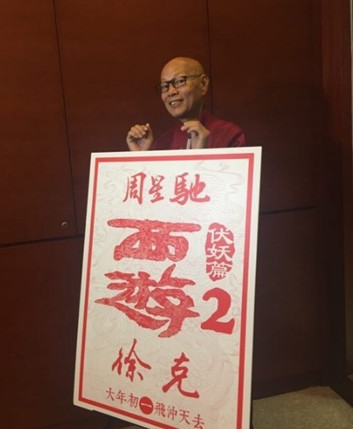 周星馳
西遊
伏妖篇
2
徐克
大年初一飛沖天去